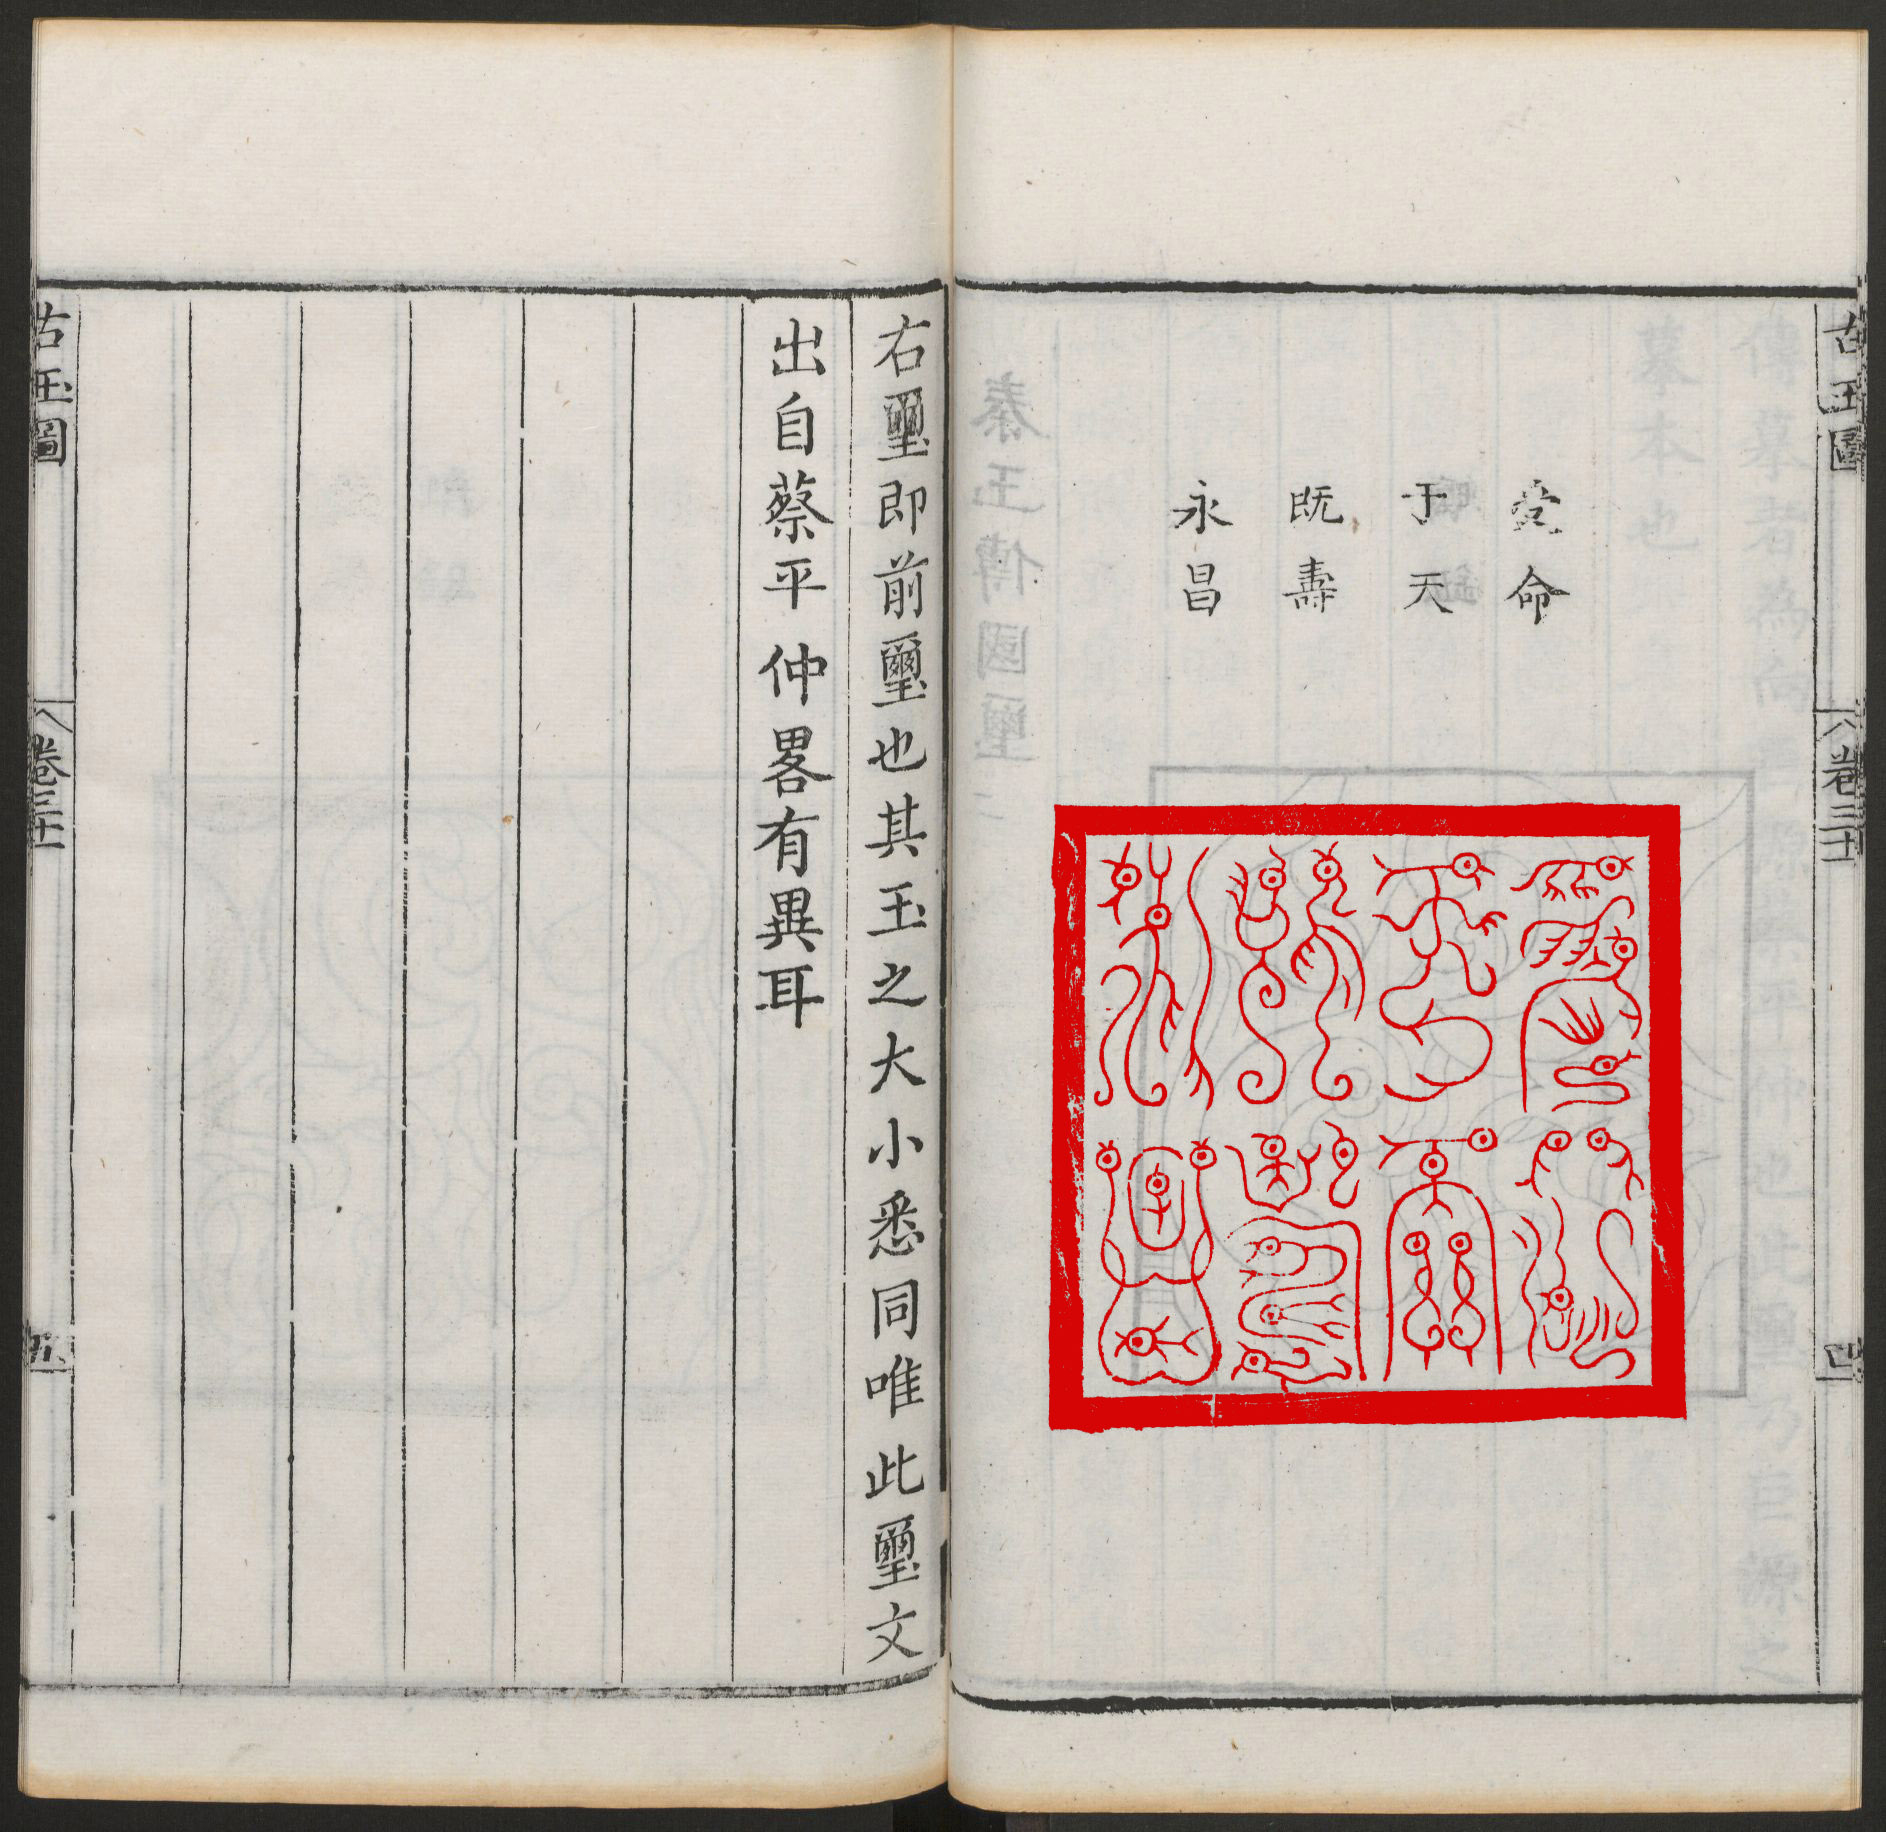 古玉圖
卷三十
四
受命
于天
既壽
永昌
右璽即前璽也其玉之大小悉同唯此璽文
出自蔡平仲畧有異耳
古玉圖
卷三十
五